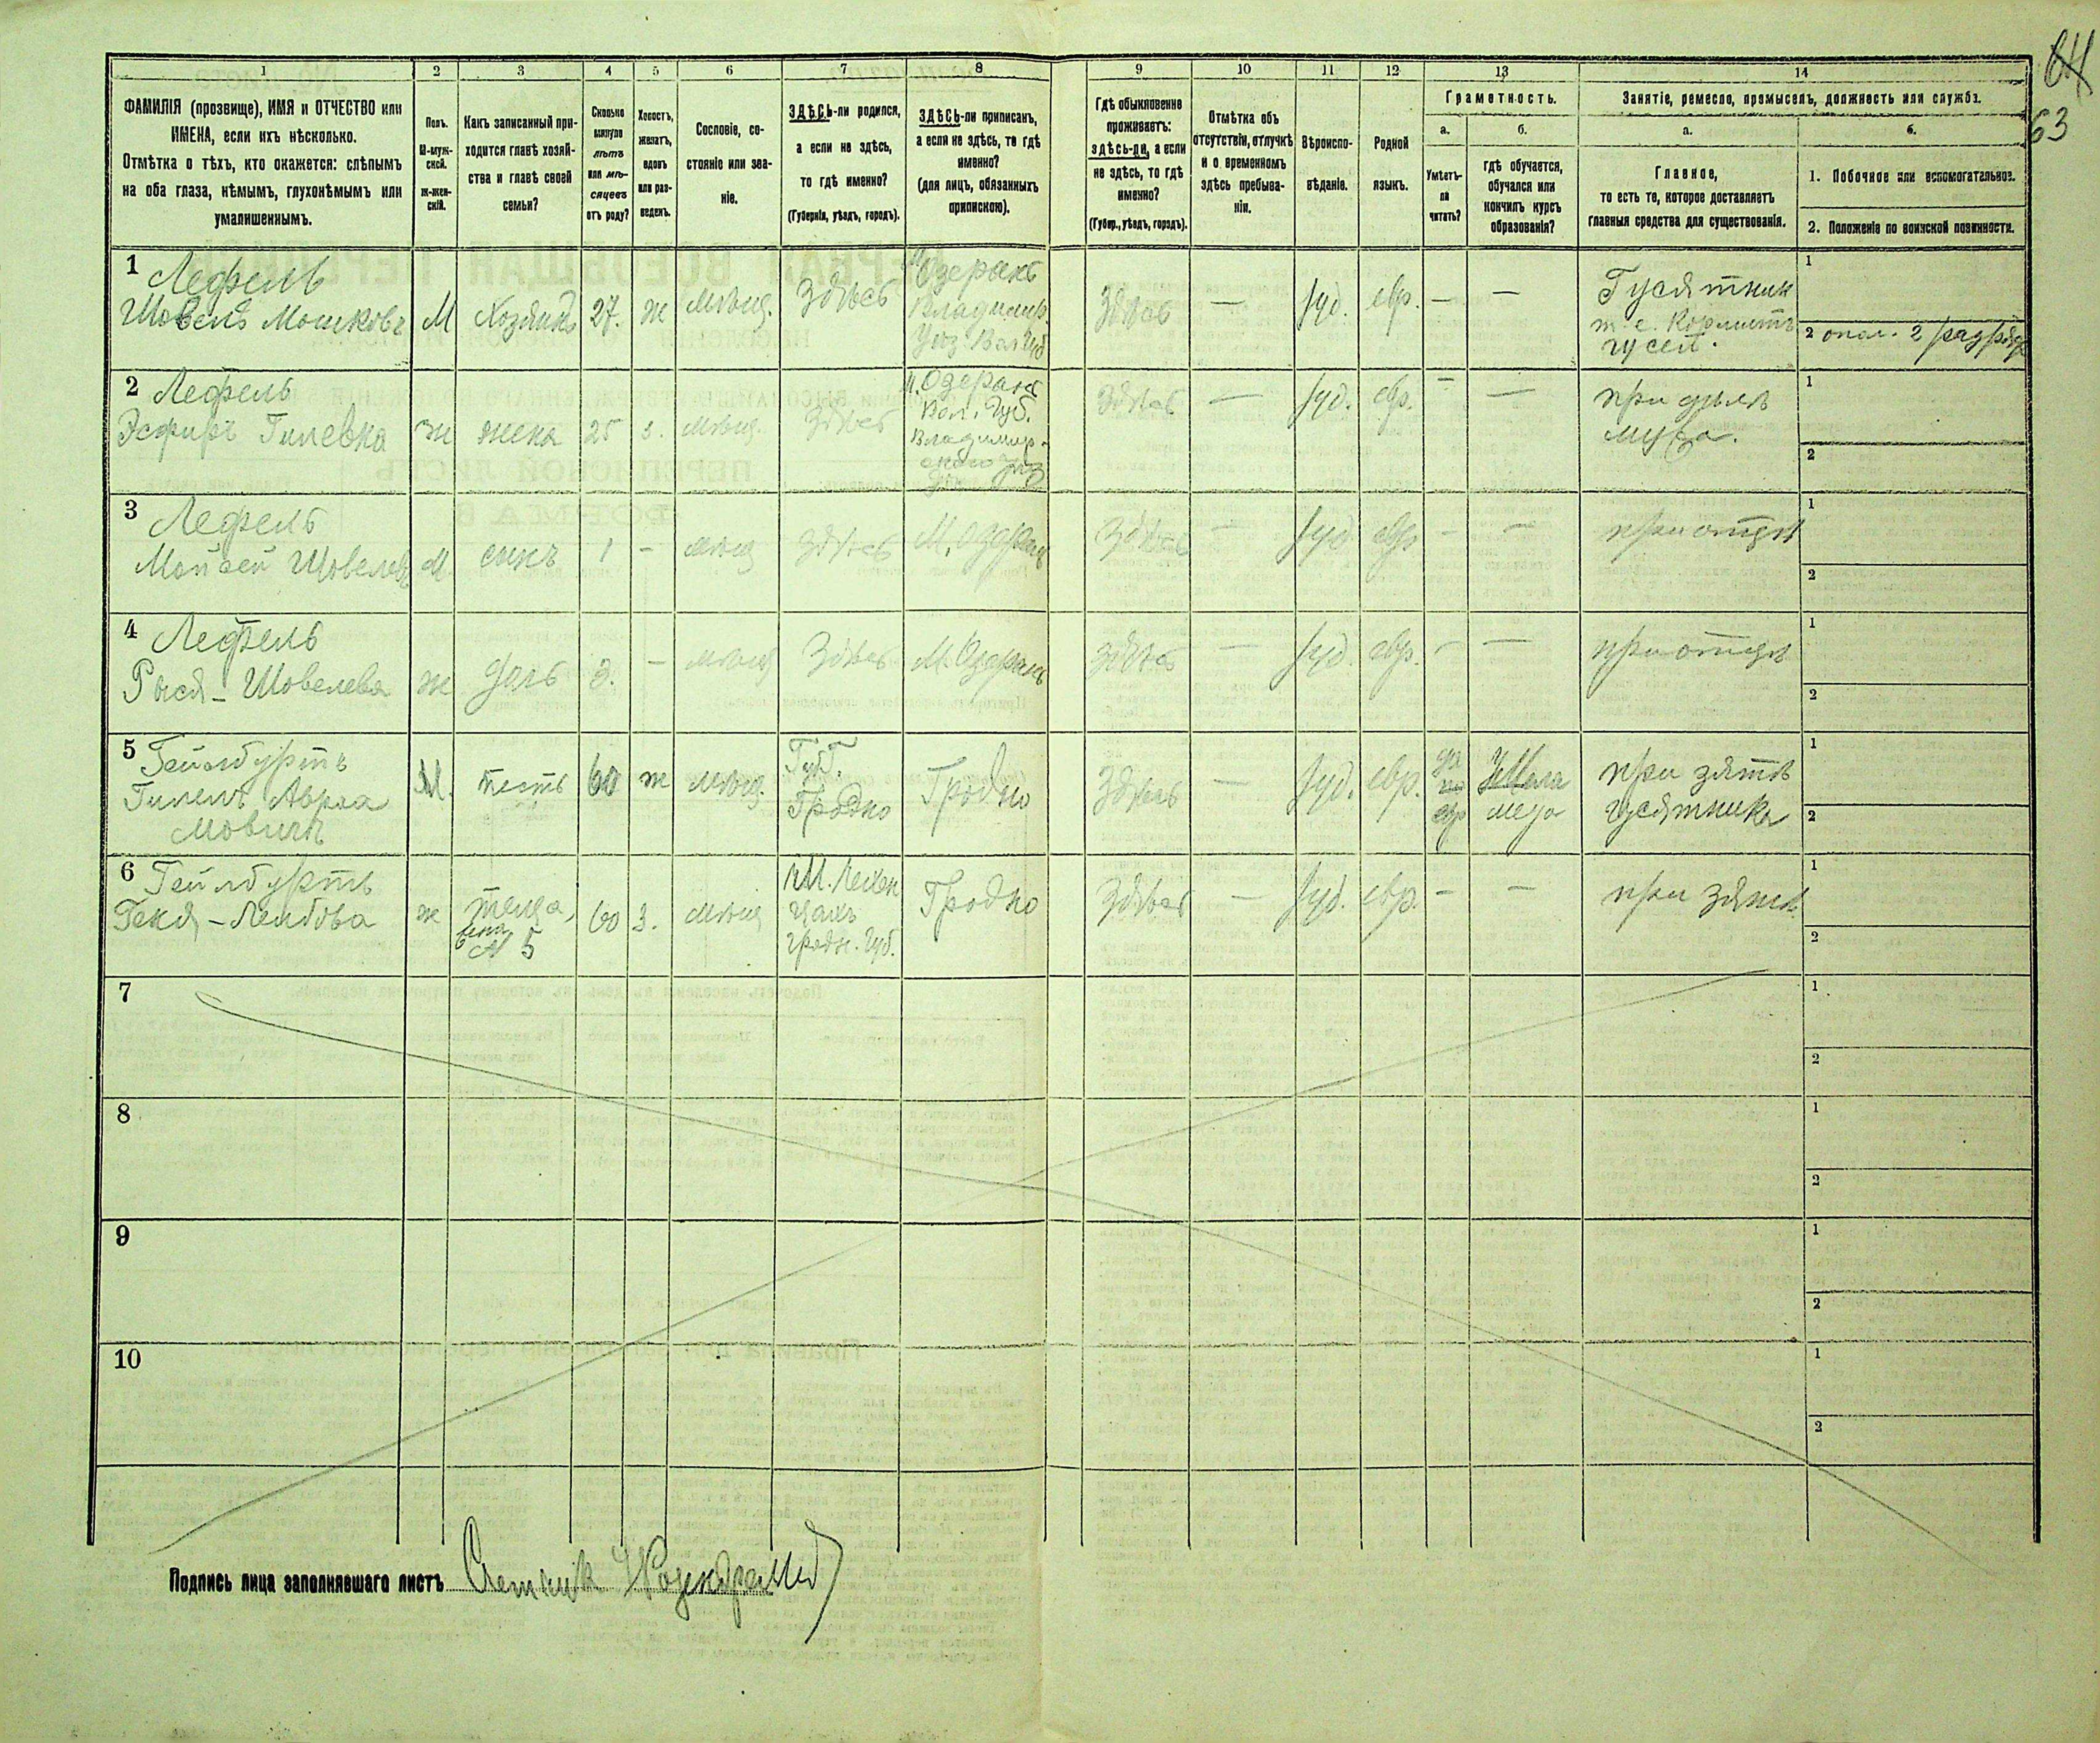 64
63
1 2 3 4 5 6 7 8 9 10 11 12 13 14
ФАМИЛІЯ (прозвище), ИМЯ и ОТЧЕСТВО или
ИМЕНА, если ихъ нѣсколько.
Отмѣтка о тѣхъ, кто окажется: слѣпымъ
на оба глаза, нѣмымъ, глухонѣмымъ или
умалишеннымъ.
Полъ.
М-муж-
ской.
ж-жен-
скій.
Какъ записанный при-
ходится главѣ хозяй-
ства и главѣ своей
семьи?
Сколько
минуло
лѣтъ
или мѣ-
сяцевъ
отъ роду?
Холостъ,
женатъ,
вдовъ
или раз-
веденъ.
Сословіе, со-
стояніе или зва-
ніе.
ЗДѢСЬ-ли родился,
а если не здѣсь,
то гдѣ именно?
(Губернія, уѣздъ, городъ).
ЗДѢСЬ-ли приписанъ,
а если не здѣсь, то гдѣ
именно?
(для лицъ, обязанныхъ
припискою).
Гдѣ обыкновенно
проживаетъ:
здѣсь-ли, а если
не здѣсь, то гдѣ
именно?
(Губер., уѣздъ, городъ).
Отмѣтка объ
отсутствіи, отлучкѣ
и о временномъ
здѣсь пребыва-
ніи.
Вѣроиспо-
вѣданіе.
Родной
языкъ.
Грамотность.
а.
Умѣетъ-
ли
читать?
б.
гдѣ обучается,
обучался или
кончилъ курсъ
образованія?
Занятіе, ремесло, промыселъ, должность или служба.
а.
Главное,
то есть то, которое доставляетъ
главныя средства для существованія.
б.
1. Побочное или вспомогательное.
2. Положеніе по воинской повинности.
1 Лефель
Шовель Мошковъ М Хозяинъ 27. ж мѣщ. Здѣсь
Озеранъ
Владимир.
Уѣз. Вол. Губ
Здѣсь — Іуд. евр. — —
Гусятник
т.е. Кормитъ
гусей.
1
2 опол. 2 разряд
2 Лефель
Эсфирь Гилевна ж жена 25 з. мѣщ. Здѣсь
М. Озеранъ
Вол. Губ.
Владимир-
скаго уѣз
Здѣсь — Іуд. евр. — —
при дѣлѣ
мужа.
1
2
3 Лефель
Мойсей Шовелевъ М сынъ 1 — мѣщ Здѣсь М. Озеранъ Здѣсь — Іуд евр — — при отцѣ
1
2
4 Лефель
Рыся - Шовелева ж дочь 3. — мѣщ Здѣсь М. Озеранъ Здѣсь — Іуд. евр. — — при отцѣ
1
2
5 Гейлбуртъ
Гилель Авраа
мовичъ
М. тесть 60 ж мѣщ.
Губ.
Гродно
Гродно Здѣсь — Іуд. евр.
да
по
евр
у Мела
меда
при зятѣ
гусятника
1
2
6 Гейлбуртъ
Геня - Лейбова ж
теща,
жена
№ 5
60 з. мѣщ
гродн. Губ.
Гродно Здѣсь — Іуд. евр. — — при зятѣ
1
2
7
1
2
8
1
2
9
1
2
10
1
2
Подпись лица заполнявшаго листъ